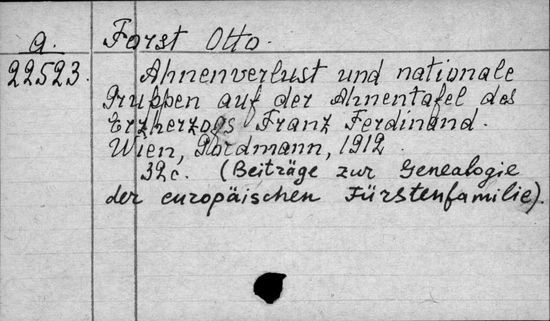 a. Forst Otto.
22523. Ahnenverlust und nationale
Gruppen auf der Ahnentafel des
Erzherzogs Franz Ferdinand.
Wien, Gerdmann, 1912
32c. (Beiträge zur Genealogie
der europäischen Fürstenfamilie).